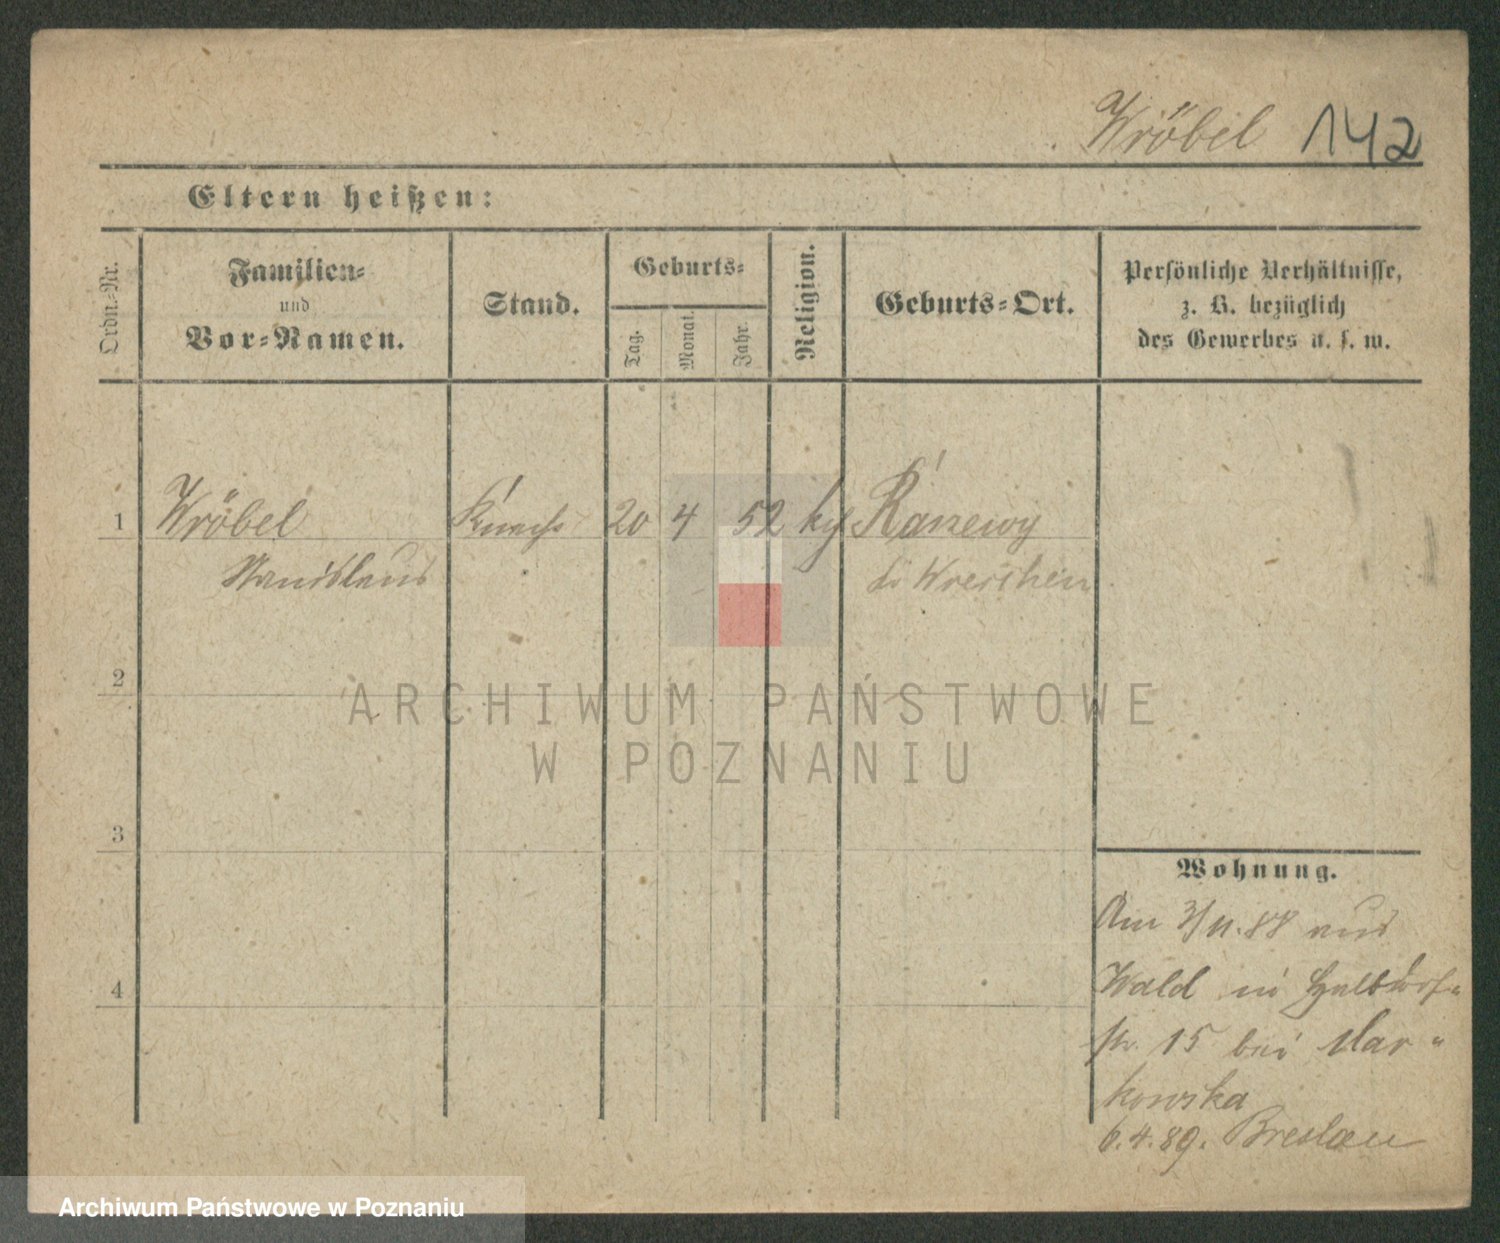 Wröbel 142
Eltern heißen:
Ordn.-Nr.
Familien-
und
Vor-Namen.
Stand.
Geburts-
Tag.
Monat.
Jahr.
Religion.
Geburts-Ort.
Persönliche Verhältnisse,
z. B. bezüglich
des Gewerbes u. s. w.
1 Wröbel Knecht 20 4 52 kg
Stanislaus Wreschen
2
3
4
Wohnung.
Am 3/11.88 aus
Wald in Halbdorf-
str. 15 bei Mar-
kowska
6.4.89. Breslau
ARCHIWUM PAŃSTWOWE
W POZNANIU
Archiwum Państwowe w Poznaniu